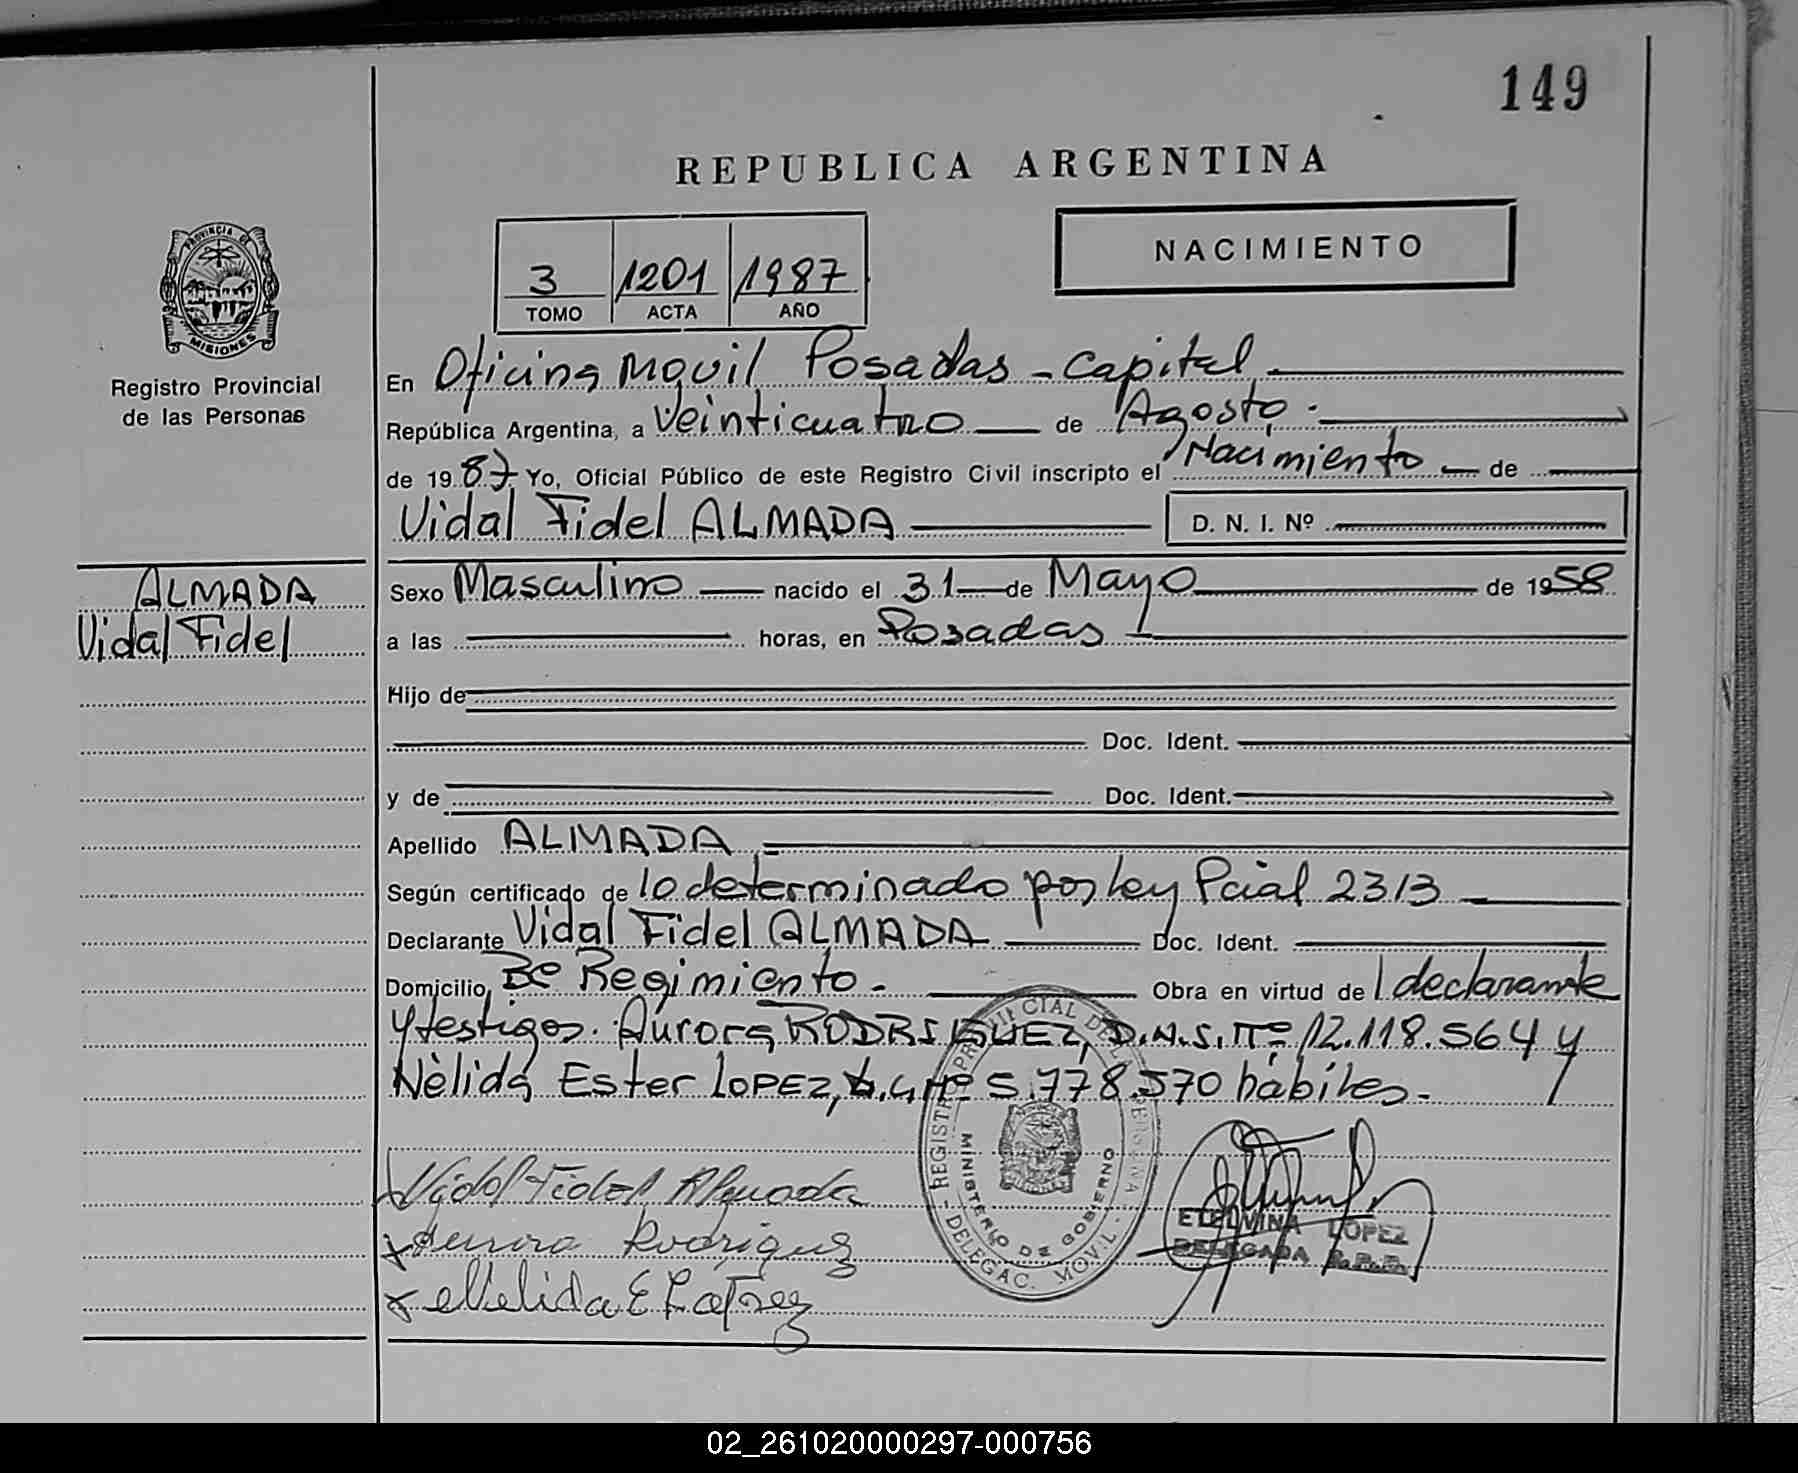 149
REPUBLICA ARGENTINA
NACIMIENTO
3 1201 1987
TOMO ACTA AÑO
PROVINCIA DE MISIONES
Registro Provincial
de las Personas
En Oficina Movil Posadas - Capital
República Argentina, a Veinticuatro de Agosto.
de 1987. Yo, Oficial Público de este Registro Civil inscripto el Nacimiento de
Vidal Fidel ALMADA D. N. I. Nº
ALMADA
Vidal Fidel
Sexo Masculino nacido el 31 de Mayo de 1958
a las horas, en Posadas
Hijo de
Doc. Ident.
y de Doc. Ident.
Apellido ALMADA
Según certificado de lo determinado por ley Pcial 2313
Declarante Vidal Fidel ALMADA Doc. Ident.
Domicilio Bº Regimiento - Obra en virtud de l declarante
y testigos. Aurora RODRIGUEZ, D.N.I. Nº 12.118.564 y
Nèlida Ester LOPEZ, Nº 5.778.570 hábiles.-
REGISTRO PROVINCIAL DE LAS PERSONAS
MINISTERIO DE GOBIERNO
- DELEGAC. MOVIL -
Vidal Fidel Almada
x Aurora Rodriguez
x Nelida E Lopez
ETELVINA LOPEZ
DELEGADA R.P.P.
02_261020000297-000756